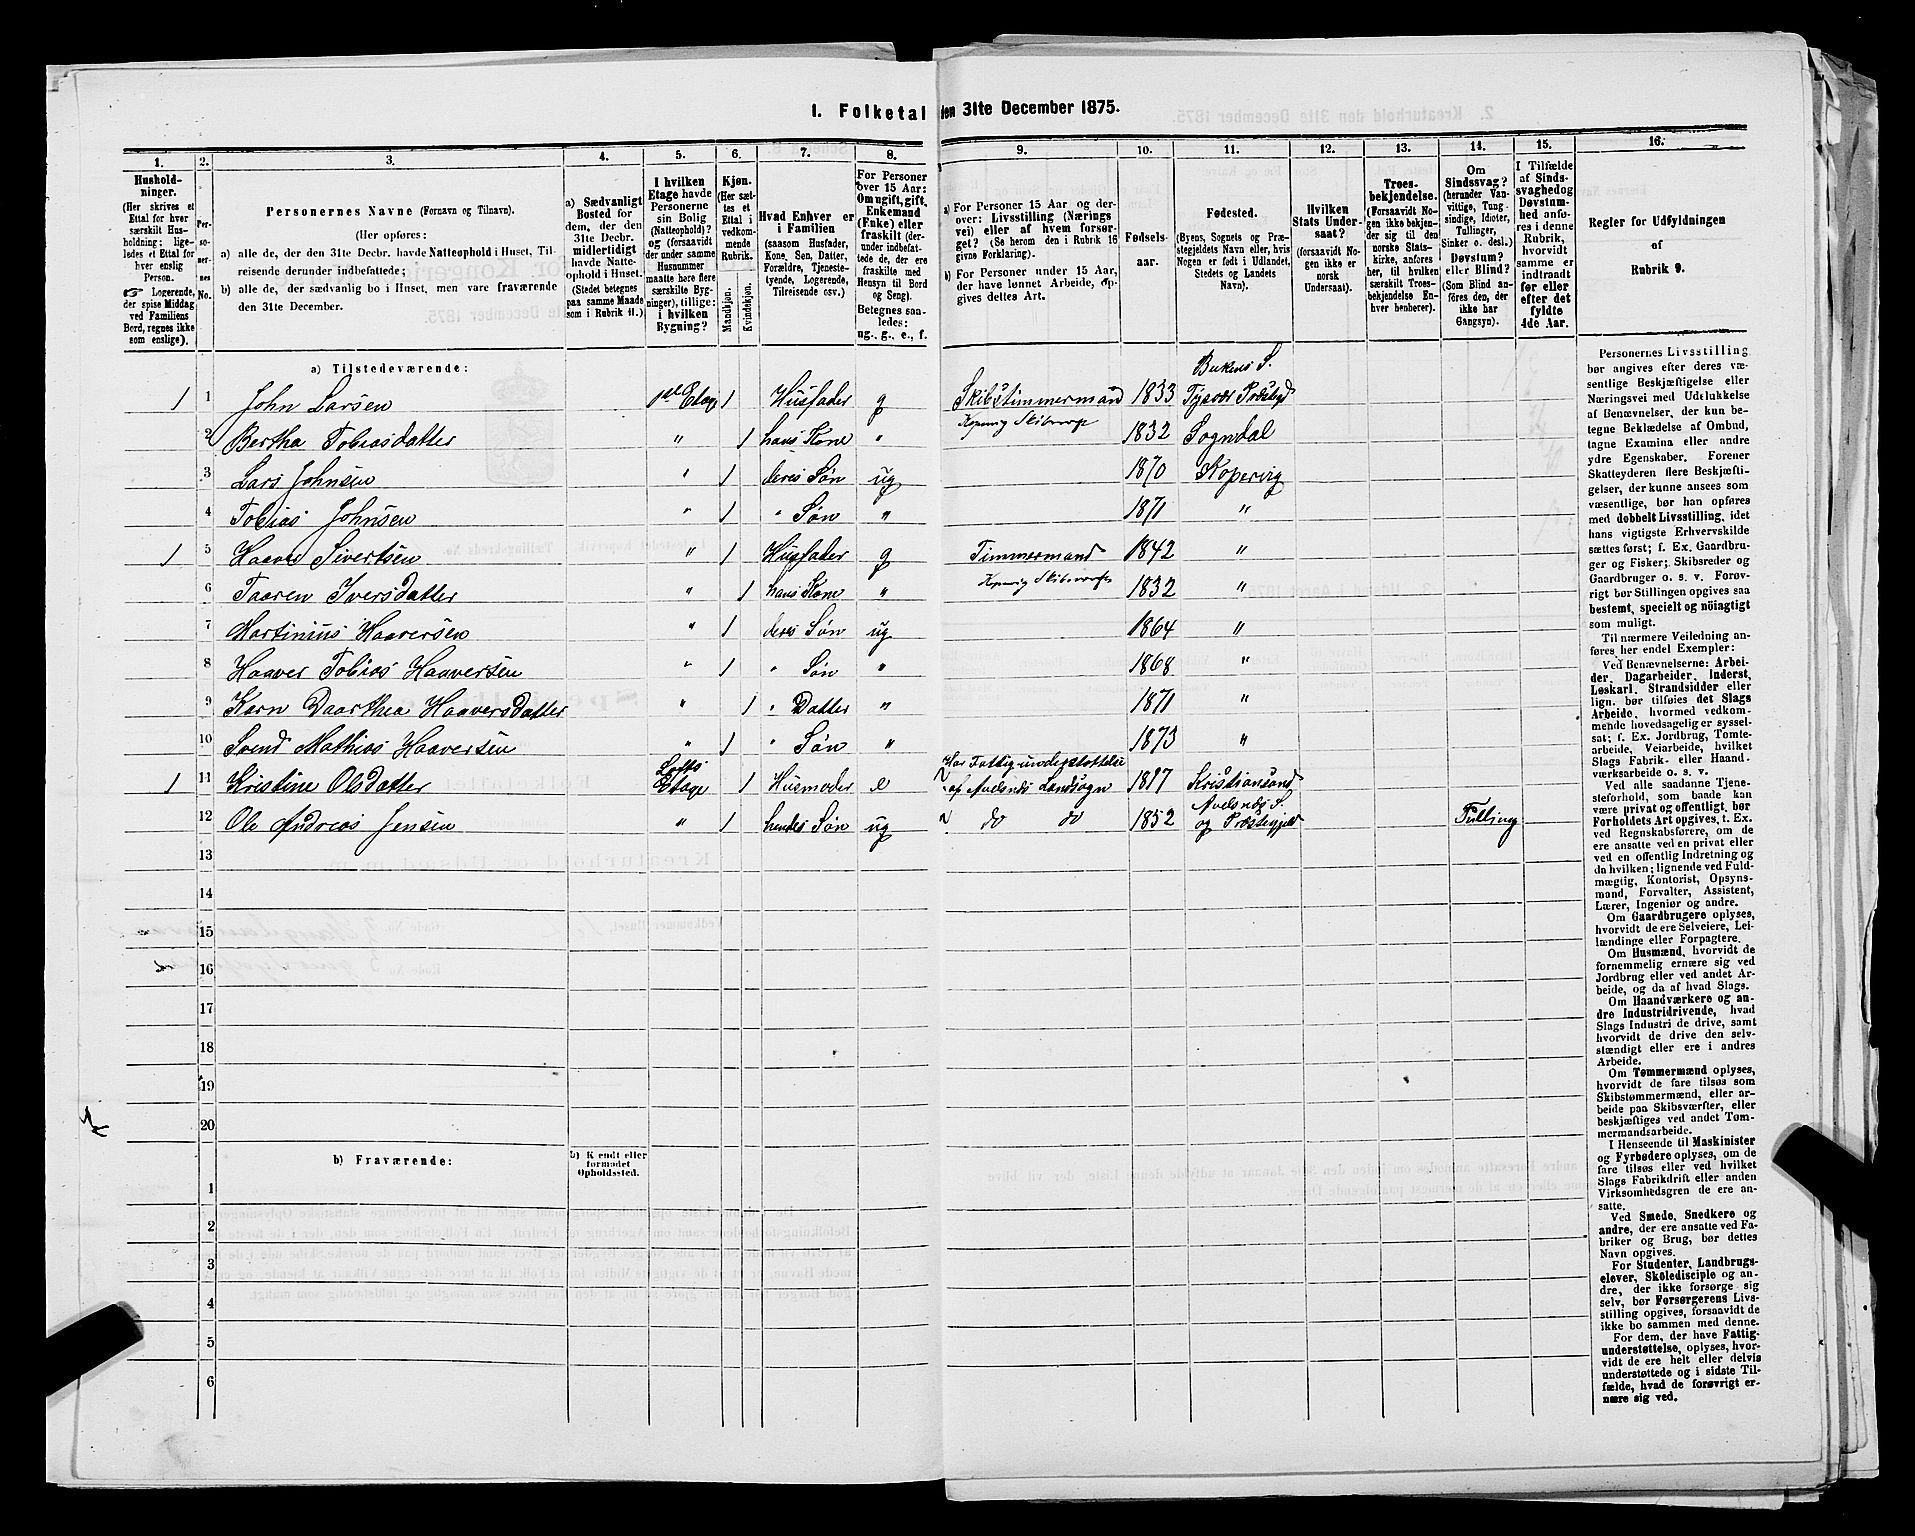 1. Folketal den 31te December 1875.
1. 2. 3. 4. 5. 6. 7. 8. 9. 10. 11. 12. 13. 14. 15. 16.
Hushold-
ninger.
(Her skrives et
Ettal for hver
særskilt Hus-
holdning; lige-
ledes et Ettal for
hver enslig
Person.
☞ Logerende,
der spise Middag
ved Familiens
Bord, regnes ikke
som enslige).
Per-
so-
ner-
nes
No.
Personernes Navne (Fornavn og Tilnavn).
(Her opføres:
a) alle de, der den 31te Decbr. havde Natteophold i Huset, Til-
reisende derunder indbefattede;
b) alle de, der sædvanlig bo i Huset, men vare fraværende
den 31te December.
a) Sædvanligt
Bosted for
dem, der den
31te Decbr.
midlertidigt
havde Natte-
ophold i Huset.
(Stedet betegnes
paa samme Maade
som i Rubrik 11.)
I hvilken
Etage havde
Personerne
sin Bolig
(Natteophold)?
og (forsaavidt
der under samme
Husnummer
maatte have flere
særskilte Byg-
ninger), tillige:
i hvilken
Bygning?
Kjøn.
(Her sæt-
tes et
Ettal i
vedkom-
mende
Rubrik.
Mandkjøn.
Kvindekjøn.
Hvad Enhver er
i Familien
(saasom Husfader,
Kone, Søn, Datter,
Forældre, Tjeneste-
tyende, Logerende,
Tilreisende osv.)
For Personer
over 15 Aar:
Om ugift, gift,
Enkemand
(Enke) eller
fraskilt (der-
under indbefat-
tede de, der ere
fraskilte med
Hensyn til Bord
og Seng).
Betegnes saa-
ledes:
ug., g., e., f.
a) For Personer 15 Aar og der-
over: Livsstilling (Nærings
vei) eller af hvem forsør-
get? (Se herom den i Rubrik 16
givne Forklaring).
b) For Personer under 15 Aar,
der have lønnet Arbeide, op-
gives dettes Art.
Fødsels-
aar.
Fødested.
(Byens, Sognets og Præ-
stegjeldets Navn eller, hvis
Nogen er født i Udlandet,
Stedets og Landets
Navn).
Hvilken
Stats Under-
saat?
(forsaavidt No-
gen ikke er
norsk
Undersaat).
Troes-
bekjendelse.
(Forsaavidt No-
gen ikke bekjen-
der sig til den
norske Stats-
kirke, anføres
her, til hvilken
særskilt Troes-
bekjendelse En-
hver henhører).
Om
Sindssvag?
(herunder Van-
vittige, Tung-
sindige, Idioter,
Tullinger,
Sinker o. desl.)
Døvstum?
eller Blind?
(Som Blind an-
føres den, der
ikke har
Gangsyn).
I Tilfælde
af Sinds-
svaghed og
Døvstum-
hed anfø-
res i denne
Rubrik,
hvorvidt
samme er
indtraadt
før eller
efter det
fyldte
4de Aar.
Regler for Udfyldningen
af
Rubrik 9.
a) Tilstedeværende:
Bukens S.
1 1 John Larsen 1ste Etage 1 Husfader g Skibstimmermand 1833 Tysvær Præstegj
Kopervig Skibsverft
2 Bertha Tobiasdatter " 1 hans Kone " 1832 Sogndal
3 Lars Johnsen " 1 deres Søn ug 1870 Kopervig
4 Tobias Johnsen " 1 " Søn " 1871 "
1 5 Haaver Sivertsen " 1 Husfader g Timmermand 1842 "
Kopervig Skibsverft
6 Taaren Iversdatter " 1 hans Kone " 1832 "
7 Martinius Haaversen " 1 deres Søn ug 1864 "
8 Haaver Tobias Haaversen " 1 " Søn " 1868 "
9 Karn Daarthea Haaversdatter " 1 " Datter " 1871 "
10 Svend Mathias Haaversen " 1 " Søn " 1873 "
1 11 Kristine Olsdatter Lofts Etage 1 Husmoder e Har Fattigunderstøttelse af Avelsnds Landsogn 1817 Kristiansand
12 Ole Andreas Jensen " 1 hendes Søn ug " do do 1852 Avelsnæs S. og Præstegjeld Tulling
13
14
15
16
17
18
19
20
b) Fraværende:
b) Kjendt eller
formodet
Opholdssted.
1
2
3
4
5
6
Personernes Livsstilling
bør angives efter deres væ-
sentlige Beskjæftigelse eller
Næringsvei med Udelukkelse
af Benævnelser, der kun be-
tegne Beklædelse af Ombud,
tagne Examina eller andre
ydre Egenskaber. Forener
Skatteyderen flere Beskjæfti-
gelser, der kunne ansees som
væsentlige, bør han opføres
med dobbelt Livsstilling, idet
hans vigtigste Erhvervskilde
sættes først; f. Ex. Gaardbru-
ger og Fisker; Skibsreder og
Gaardbruger o. s. v. Forøv-
rigt bør Stillingen opgives saa
bestemt, specielt og nöiagtigt
som muligt.
Til nærmere Veiledning an-
føres her endel Exempler:
Ved Benævnelserne: Arbei-
der, Dagarbeider, Inderst,
Løskarl, Strandsidder eller
lign. bør tilføies det Slags
Arbeide, hvormed vedkom-
mende hovedsagelig er syssel-
sat; f. Ex. Jordbrug, Tomte-
arbeide, Veiarbeide, hvilket
Slags Fabrik- eller Haand-
værksarbeide o. s. v.
Ved alle saadanne Tjene-
steforhold, som baade kan
være privat og offentligt, bør
Forholdets Art opgives, t. Ex.
ved Regnskabsførere, om de
ere ansatte ved en privat eller
ved en offentlig Indretning og
da hvilken; lignende ved Fuld-
mægtig, Kontorist, Opsyns-
mand, Forvalter, Assistent,
Lærer, Ingeniør og andre.
Om Gaardbrugere oplyses,
hvorvidt de ere Selveiere, Lei-
lændinge eller Forpagtere.
Om Husmænd, hvorvidt de
fornemmelig ernære sig ved
Jordbrug eller ved andet Ar-
beide, og da af hvad Slags.
Om Haandværkere og an-
dre Industridrivende, hvad
Slags Industri de drive, samt
hvorvidt de drive den selv-
stændigt eller ere i andres
Arbeide.
Om Tømmermænd oplyses,
hvorvidt de fare tilsøs som
Skibstømmermænd, eller ar-
beide paa Skibsværfter, eller
beskjæftiges ved andet Tøm-
mermandsarbeide.
I Henseende til Maskinister
og Fyrbødere oplyses, om de
fare tilsøs eller ved hvilket
Slags Fabrikdrift eller anden
Virksomhedsgren de ere an-
satte.
Ved Smede, Snedkere og
andre, der ere ansatte ved Fa-
briker og Brug, bør dettes
Navn opgives.
For Studenter, Landbrugs-
elever, Skoledisciple og an-
dre, der ikke forsørge sig
selv, bør Forsørgerens Livs-
stilling opgives, forsaavidt de
ikke bo sammen med denne.
For dem, der have Fattig-
understøttelse, oplyses, hvor-
vidt de ere helt eller delvis
understøttede og i sidste Til-
fælde, hvad de forøvrigt er-
nære sig ved.